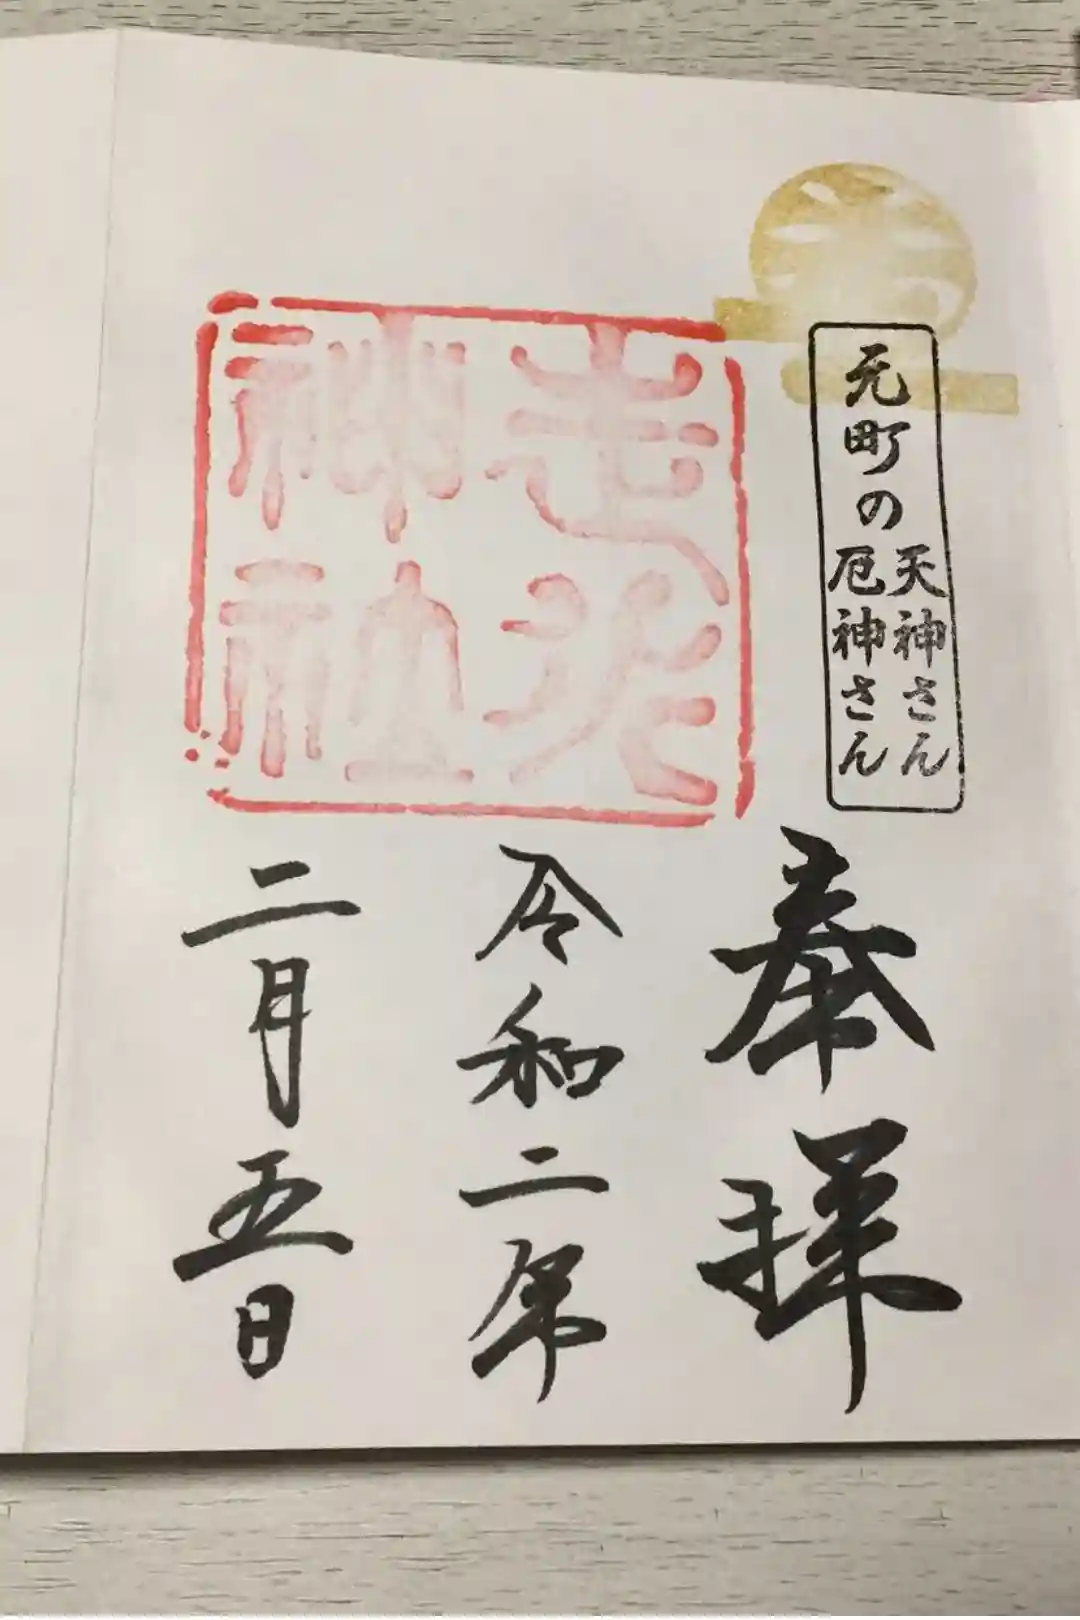 元町の
天神さん
厄神さん
奉拝
走水
神社
令和二年
二月五日